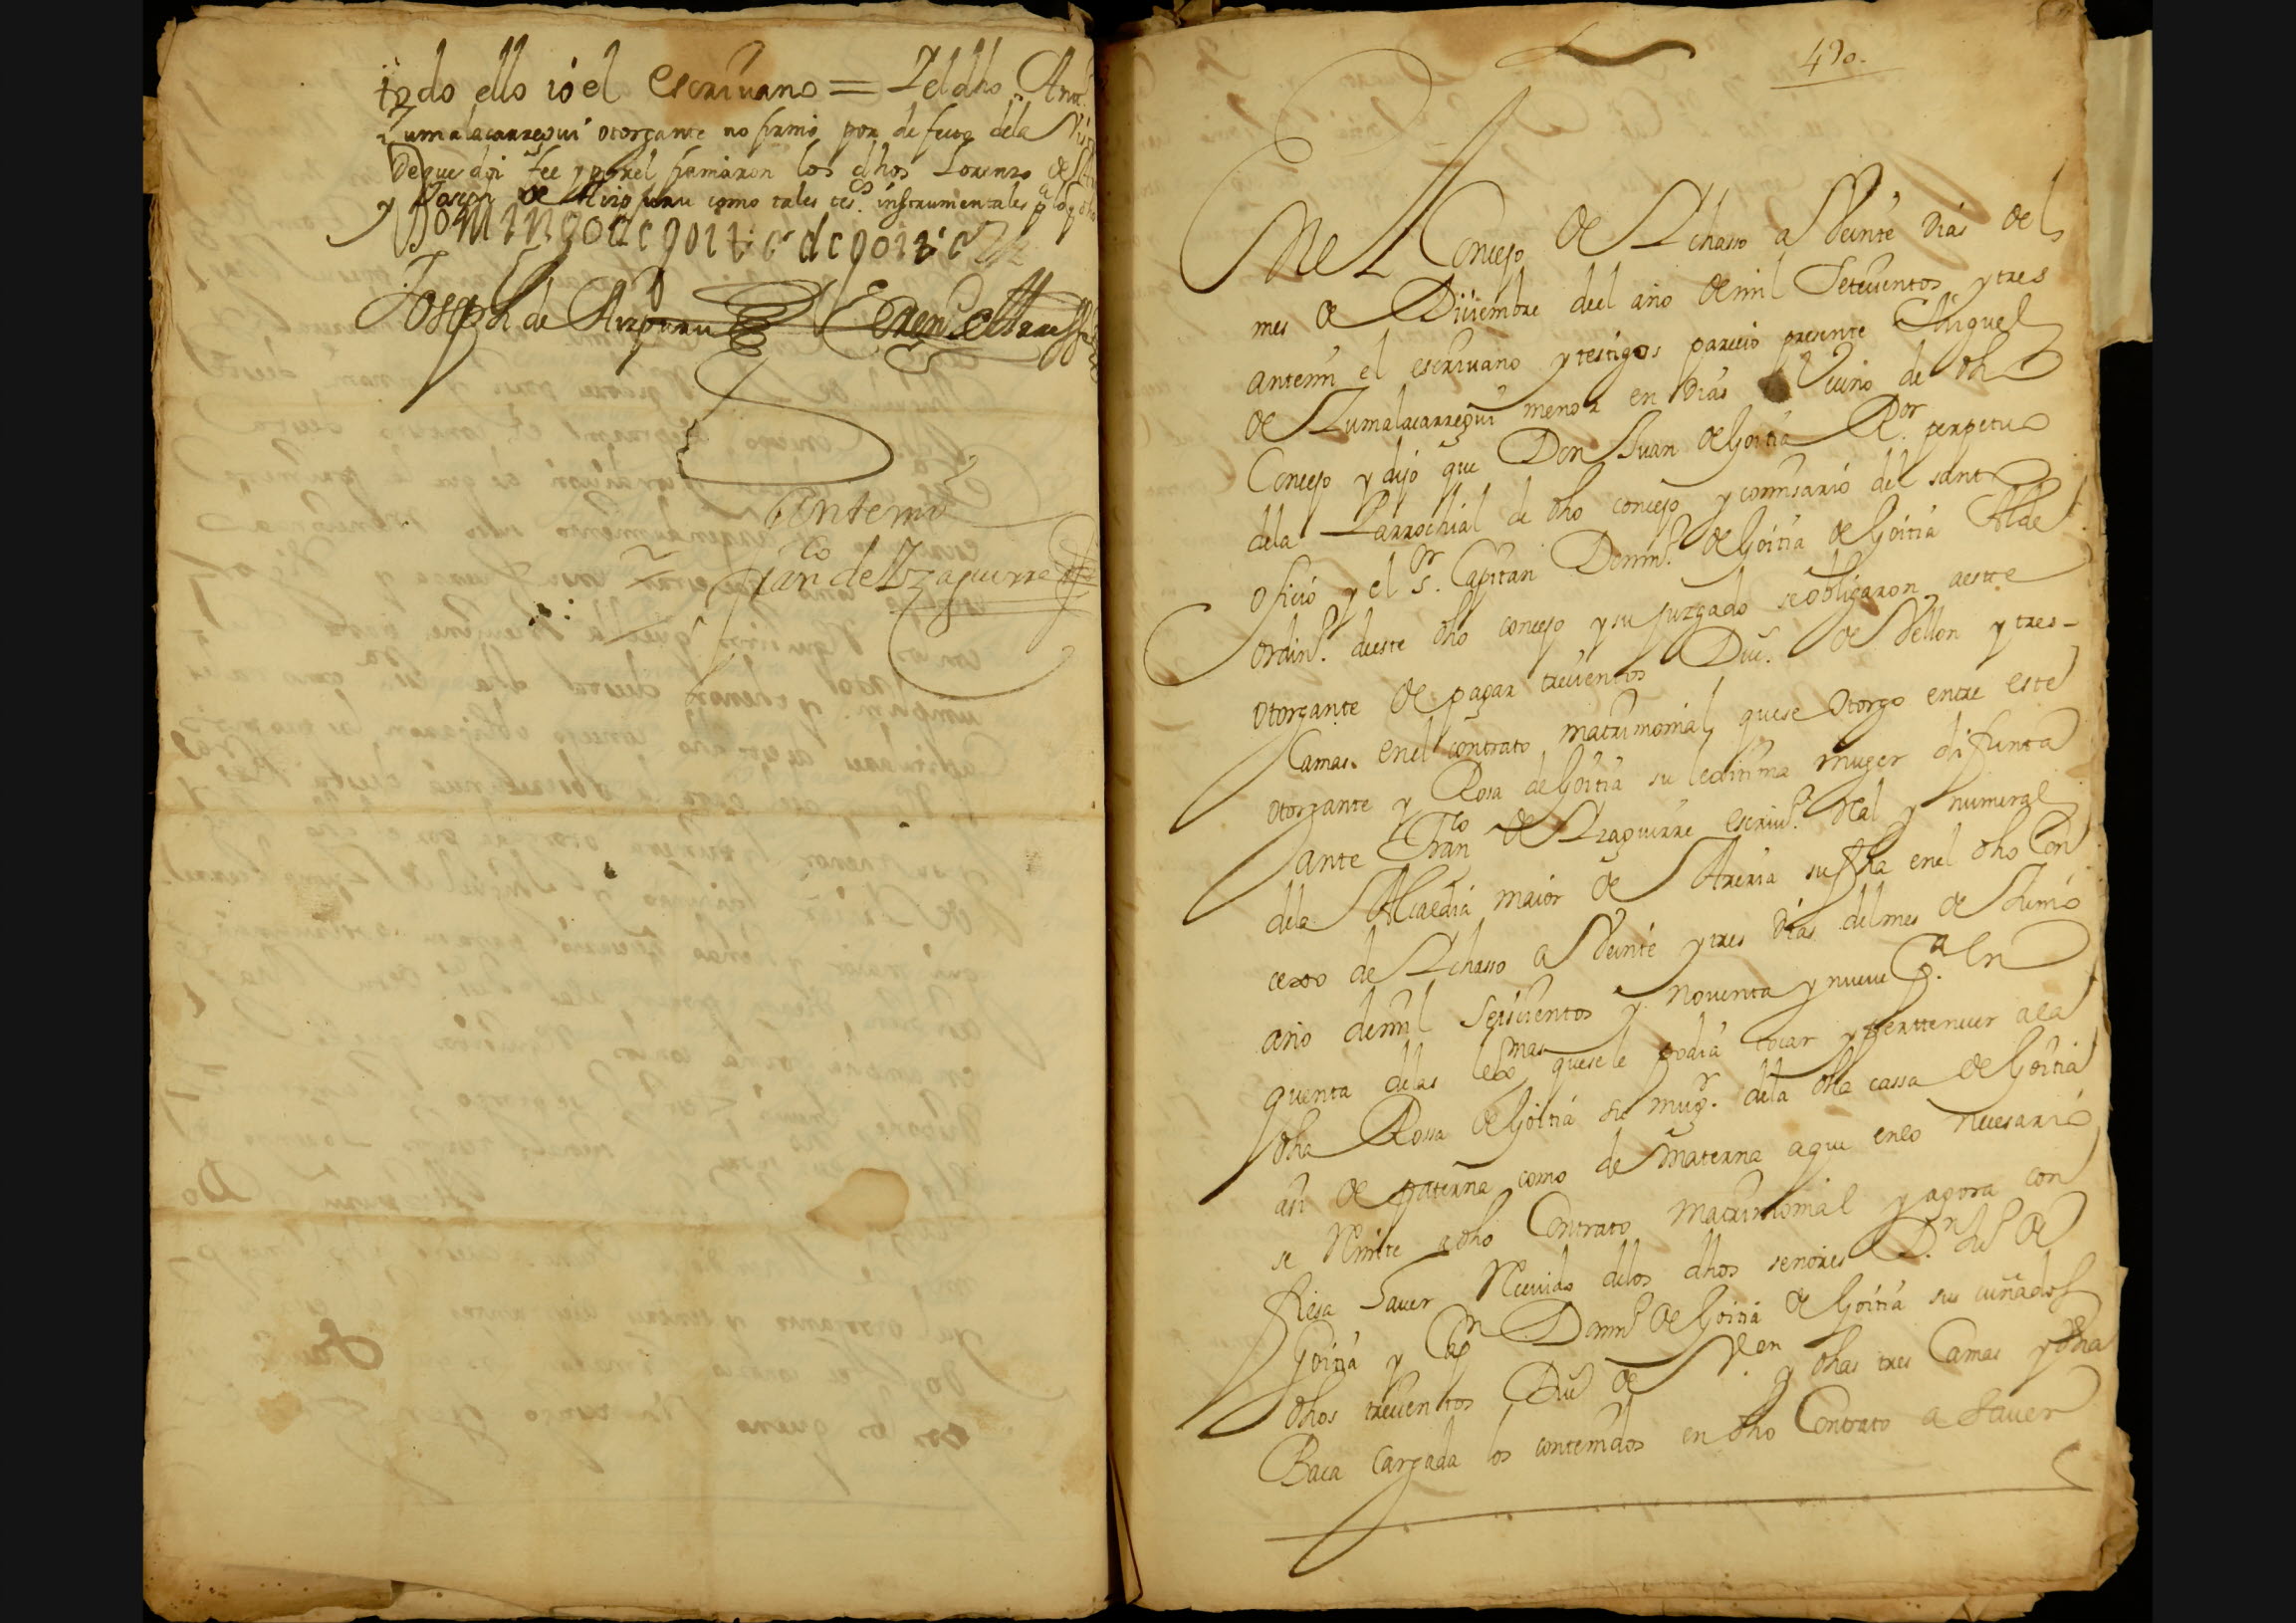 todo ello io el escriuano = I el dho Anttº
Zumalacarregui otorgante no firmo por defecto dela Vista
De que doi fee y por el firmaron los dhos Lorenzo de
y Joseph de Aizpuru como tales tesºs instrumentales
Domingo de goitia de goitia
Joseph de Aizpuru Lorenº de
Antemi
Franco de Yzaguirre
490.
En el Concejo de Ychasso a Veinte dias del
mes de Diciembre deel año de mil Setecientos y tres
antemi el escriuano y testigos parecio presente Miguel
de Zumalacarregui menor en dias Vecino de dho
Concejo y dijo que Don Juan de Goitia Ror perpetuo
dela Parrochial de dho concejo y comisario del santo
oficio y el Sr. Capitan Domin.º de Goitia de Goitia Alde
ordin.º deeste dho concejo y su juzgado se obligaron a este
otorgante de pagar trecientos Duc.s de Vellon y tres
Camas. en el contrato matrimonial que se otorgo entre este
otorgante y Rosa de Goitia su lexitima muger difunta
ante Franco de Yzaguirre escriu.º Real y numeral
dela Alcaldia maior de Areria su fha en el dho Con
cexo de Ychasso a Veinte y tres dias del mes de Junio
año de mil Seiscientos y noventa y nueve p.a En
quenta delas lexmas que se le podia tocar y perttenecer ala
dha Rossa de Goitia su mugr. dela dha cassa de Goitia
asi de paterna como de Materna a que en lo necesario
se Remite a dho Contrato Matrimonial y agora con
fiesa Hauer Receuido delos dhos señores D.n Ju.º de
Goitia y Capn Domin.º de Goitia de Goitia sus cuñados
dhos trecientos Duc.s de V.on y dhas tres Camas y dha
Baca Cargada los contenidos en dho Contrato a Sauer